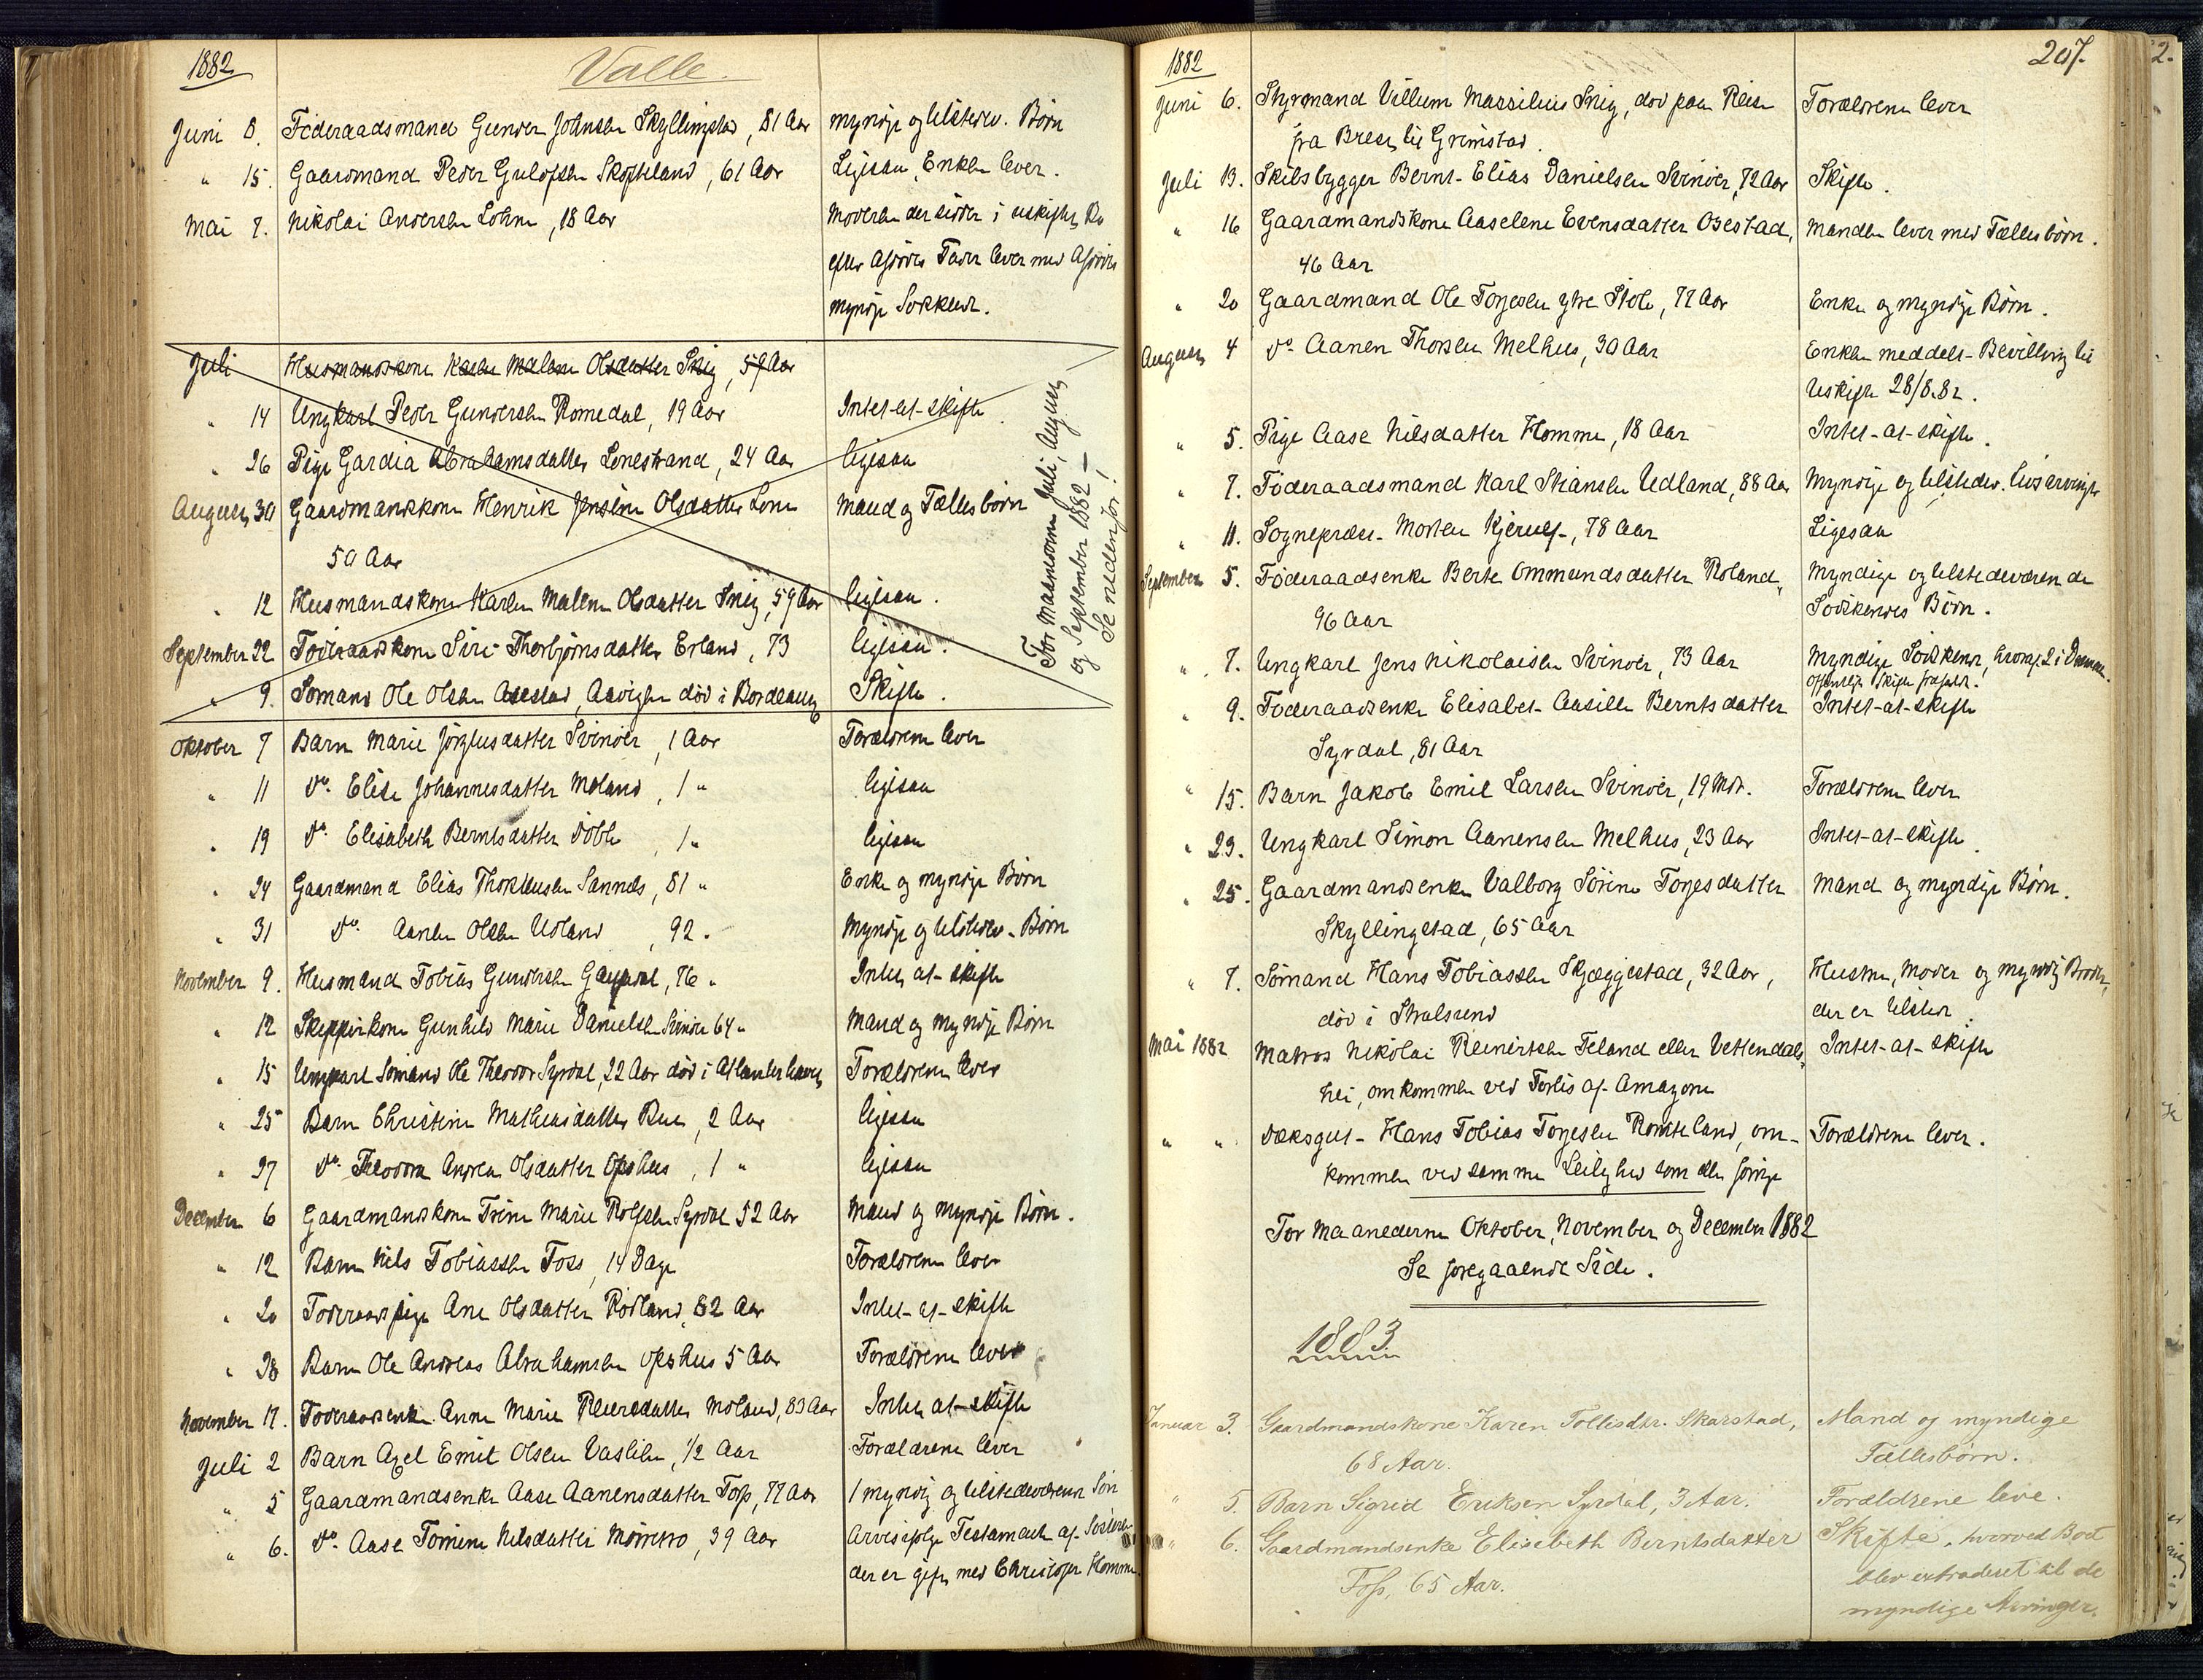 1882
Valle.
Juni 8. Föderaadsmand Gunder Johnsen Skyllingstad, 81 Aar myndige og tilstedev. Börn
" 15. Gaardmand Peder Gulofsen Skofteland, 61 Aar Ligesaa, Enken lever.
Mai 7. Nikolai Andersen Lohne, 18 Aar Moderen der sidder i uskiftet Bo
efter Afdödes Fader lever med Afdödes
myndige Södskende.
Juli Husmandskone Karen Malene Olsdatter Snig, 59 Aar
" 14 Ungkarl Peder Gundersen Romedal, 19 Aar Intet at skifte
" 26 Pige Gardia Abrahamsdatter Lonestrand, 24 Aar ligesaa
August 30 Gaardmandskone Henrik Jensine Olsdatter Lone Mand og Fællesbörn
50 Aar
" 12 Husmandskone Karen Malene Olsdatter Snig, 59 Aar ligesaa.
September 22 Föderaadskone Siri Thorbjörnsdatter Erland, 73 ligesaa.
" 9. Sömand Ole Olsen Aasestad, död i Bordeaux Skifte.
For Maanederne Juli, August
og September 1882 –
Se nedenfor!
Oktober 7 Barn Marie Jörglusdatter Svinöer, 1 Aar Forældrene lever
" 11 do. Elise Johannesdatter Moland, 1 " ligesaa
" 19 do. Elisabeth Berntsdatter Döble, 1 " ligesaa
" 24 Gaardmand Elias Thorkelsen Sannes, 81 " Enke og myndige Börn
" 31 do. Aanen Olsen Udland, 92 " Myndige og tilstedev. Börn
November 9. Husmand Tobias Gundersen, 76 " Intet at skifte
" 12 Skipperkone Gunhild Marie Danielsen Svinöer 64 " Mand og myndige Börn
" 15 Ungkarl Sömand Ole Theodor Syrdal, 22 Aar död i Atlanterhavet Forældrene lever
" 25 Barn Christine Mathiasdatter Rue, 2 Aar ligesaa
" 27 do. Theodora Andrea Olsdatter Opshus, 1 " ligesaa
December 6 Gaardmandskone Trine Marie Rolfsen Syrdal 52 Aar Mand og myndige Börn.
" 12 Barn Nils Tobiassen Foss, 14 Dage Forældrene lever
" 20 Föderaadspige Ane Olsdatter Rödland, 82 Aar Intet at skifte
" 28 Barn Ole Andreas Abrahamsen Opshus 5 Aar Forældrene lever
November 17. Föderaadsenke Anne Marie Reiersdatter Moland, 83 Aar Intet at skifte
Juli 2 Barn Axel Emil Olsen Vaslien, 1/2 Aar Forældrene lever
" 5 Gaardmandsenke Aase Aanensdatter Foss, 77 Aar 1 myndig og tilstedeværende Sön
" 6. do. Aase Tomine Nilsdatter, 39 Aar Arves ifölge Testament af Sösteren
der er gift med Christoffer Homme.
1882
207.
Juni 6. Styrmand Villum Marsilius Snig, död paa Reise Forældrene lever
fra Brest til Grimstad.
Juli 13. Skibsbygger Bernt Elias Danielsen Svinöer, 72 Aar Skifte.
" 16 Gaardmandskone Aaselene Evensdatter Osestad, Manden lever med Fællesbörn.
46 Aar
" 20 Gaardmand Ole Torjesen ytre Stole, 77 Aar Enke og myndige Börn.
August 4 do. Aanen Thorsen Melhus, 30 Aar Enken meddelt Bevilling til
Uskiftet 28/8.82.
" 5. Pige Aase Nilsdatter Homme, 18 Aar Intet at skifte.
" 7. Föderaadsmand Karl Stiansen Udland, 88 Aar Myndige og tilstedev. Livsarvinger
" 11. Sognepræst Morten Kjerulf, 78 Aar Ligesaa
September 5. Föderaadsenke Berte Ommundsdatter Roland, Myndige og tilstedeværende
96 Aar Södskendes Börn.
" 7. Ungkarl Jens Nikolaisen Svinöer, 73 Aar Myndige Södskende, hvoraf 2 i Danmark.
Offentlig Skifte frafaldt.
" 9. Föderaadsenke Elisabet Aasille Berntsdatter Intet at skifte
Syrdal, 81 Aar
" 15. Barn Jakob Emil Larsen Svinöer, 19 Mdr. Forældrene lever
" 23. Ungkarl Simon Aanensen Melhus, 23 Aar Intet at skifte.
" 25. Gaardmandsenke Valborg Sörine Torjesdatter Mand og myndige Börn.
Skyllingstad, 65 Aar
" 7. Sömand Hans Tobiassen Skjæggestad, 32 Aar, Hustru, Moder og myndig Broder,
död i Stralsund der er tilstede.
Mai 1882 Matros Nikolai Reinertsen Feland eller Vettendals- Intet at skifte
hei, omkommen ved Forlis af Amazone
" " Dæksgut Hans Tobias Torjesen Romteland, om- Forældrene lever.
kommen ved samme Leilighed som den förrige
For Maanederne Oktober, November og December 1882
Se foregaaende Side.
1883
Januar 3. Gaardmandskone Karen Tollisdtr. Skarstad, Mand og myndige
68 Aar. Fællesbörn.
" 5. Barn Sigrid Eriksen Syrdal, 3 Aar. Forældrene leve.
" 6. Gaardmandsenke Elisebeth Berntsdatter Skifte, hvorved Boet
Foss, 65 Aar. blev extraderet til de
myndige Arvinger.